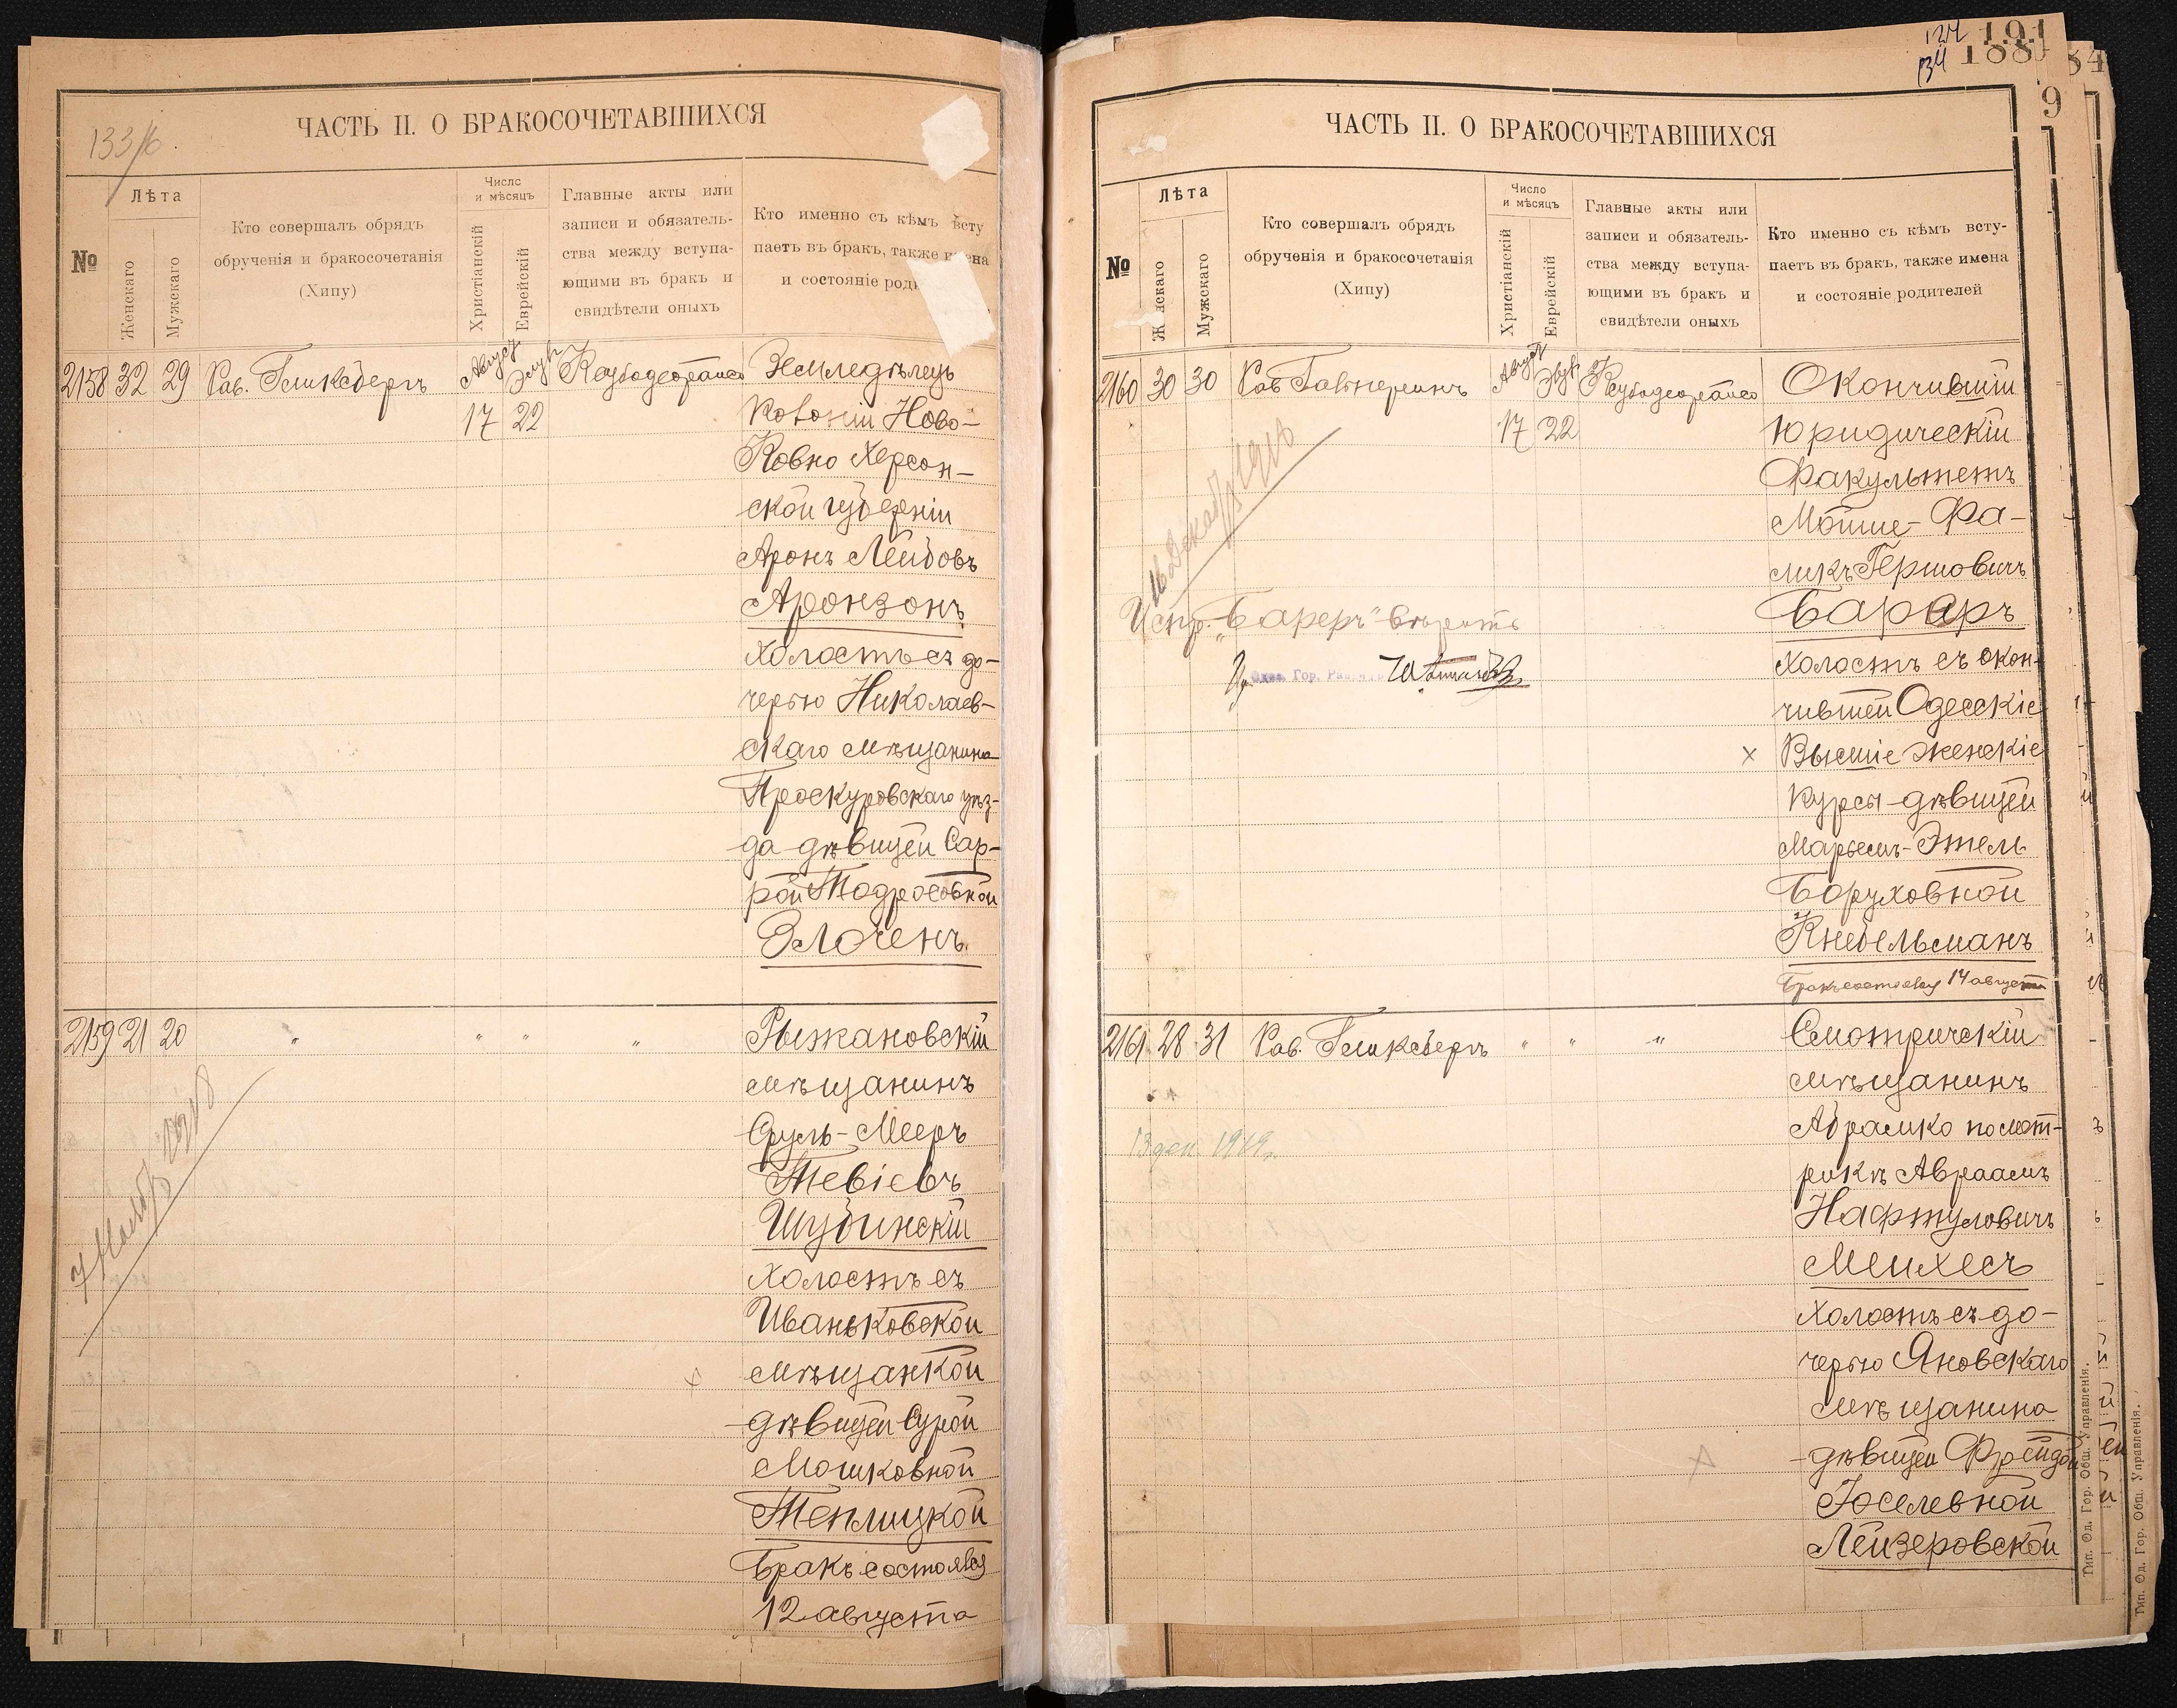 133/6.
ЧАСТЬ II. О БРАКОСОЧЕТАВШИХСЯ
№
Лѣта
Женскаго
Мужскаго
Кто совершалъ обрядъ
обрученія и бракосочетанія
(Хипу)
Число
и мѣсяцъ
Христіанскій
Еврейскій
Главные акты или
записи и обязатель-
ства между вступа-
ющими въ бракъ и
свидѣтели оныхъ
Кто именно съ кѣмъ всту
паетъ въ бракъ, также имена
и состояніе роди
2158 32 29 Рав. Гликсбергъ Август Элул 17 22
Земледѣлецъ
Колоніи Ново-
Ковно Херсон-
ской губерніи
Аронъ Лейбовъ
Аронзонъ
холостъ съ до-
черью Николаев-
скаго мѣщанина
Проскуровскаго уѣз-
да дѣвицей Сар-
рой Тодросовной
Злоченъ.
2159 21 20 " " " "
Рыжановскій
мѣщанинъ
Сруль-Мееръ
Тевіевъ
Шубинскій
холостъ съ
Иваньковской
мѣщанкой
дѣвицей Сурой
Мошковной
Теплицкой
Бракъ состоялся
12 августа
124 191
134 188
84
9
ЧАСТЬ II. О БРАКОСОЧЕТАВШИХСЯ
№
Лѣта
Ж нскаго
Мужскаго
Кто совершалъ обрядъ
обрученія и бракосочетанія
(Хипу)
Число
и мѣсяцъ
Христіанскій
Еврейскій
Главные акты или
записи и обязатель-
ства между вступа-
ющими въ бракъ и
свидѣтели оныхъ
Кто именно съ кѣмъ всту-
паетъ въ бракъ, также имена
и состояніе родителей
2160 30 30 Рав Август 17 22
Окончившій
Юридическій
Факультетъ
Мойше-Фа-
ликъ Гершовичъ
Бареръ
холостъ съ окон-
чившей Одесскіе
Высшіе Женскіе
Курсы дѣвицей
Марьемъ-Этель
Боруховной
Кнебельманъ
Бракъ состоялся 14 августа
16 Декабр 1918
Испр. „Бареръ" вѣрить
Одес. Гор. Рав
2161 28 31 Рав. Гликсбергъ " " "
Смотричскій
мѣщанинъ
Абрамко по мет-
рикѣ Авраамъ
Нафтуловичъ
Мейхесъ
холостъ съ до-
черью Яновскаго
мѣщанина
дѣвицей Фрейдой
Іоселевной
Лейзеровской
13 дек. 1919 г.
Тип. Од. Гор. Общ. Управленія.
Тип. Од. Гор. Общ. Управленія.